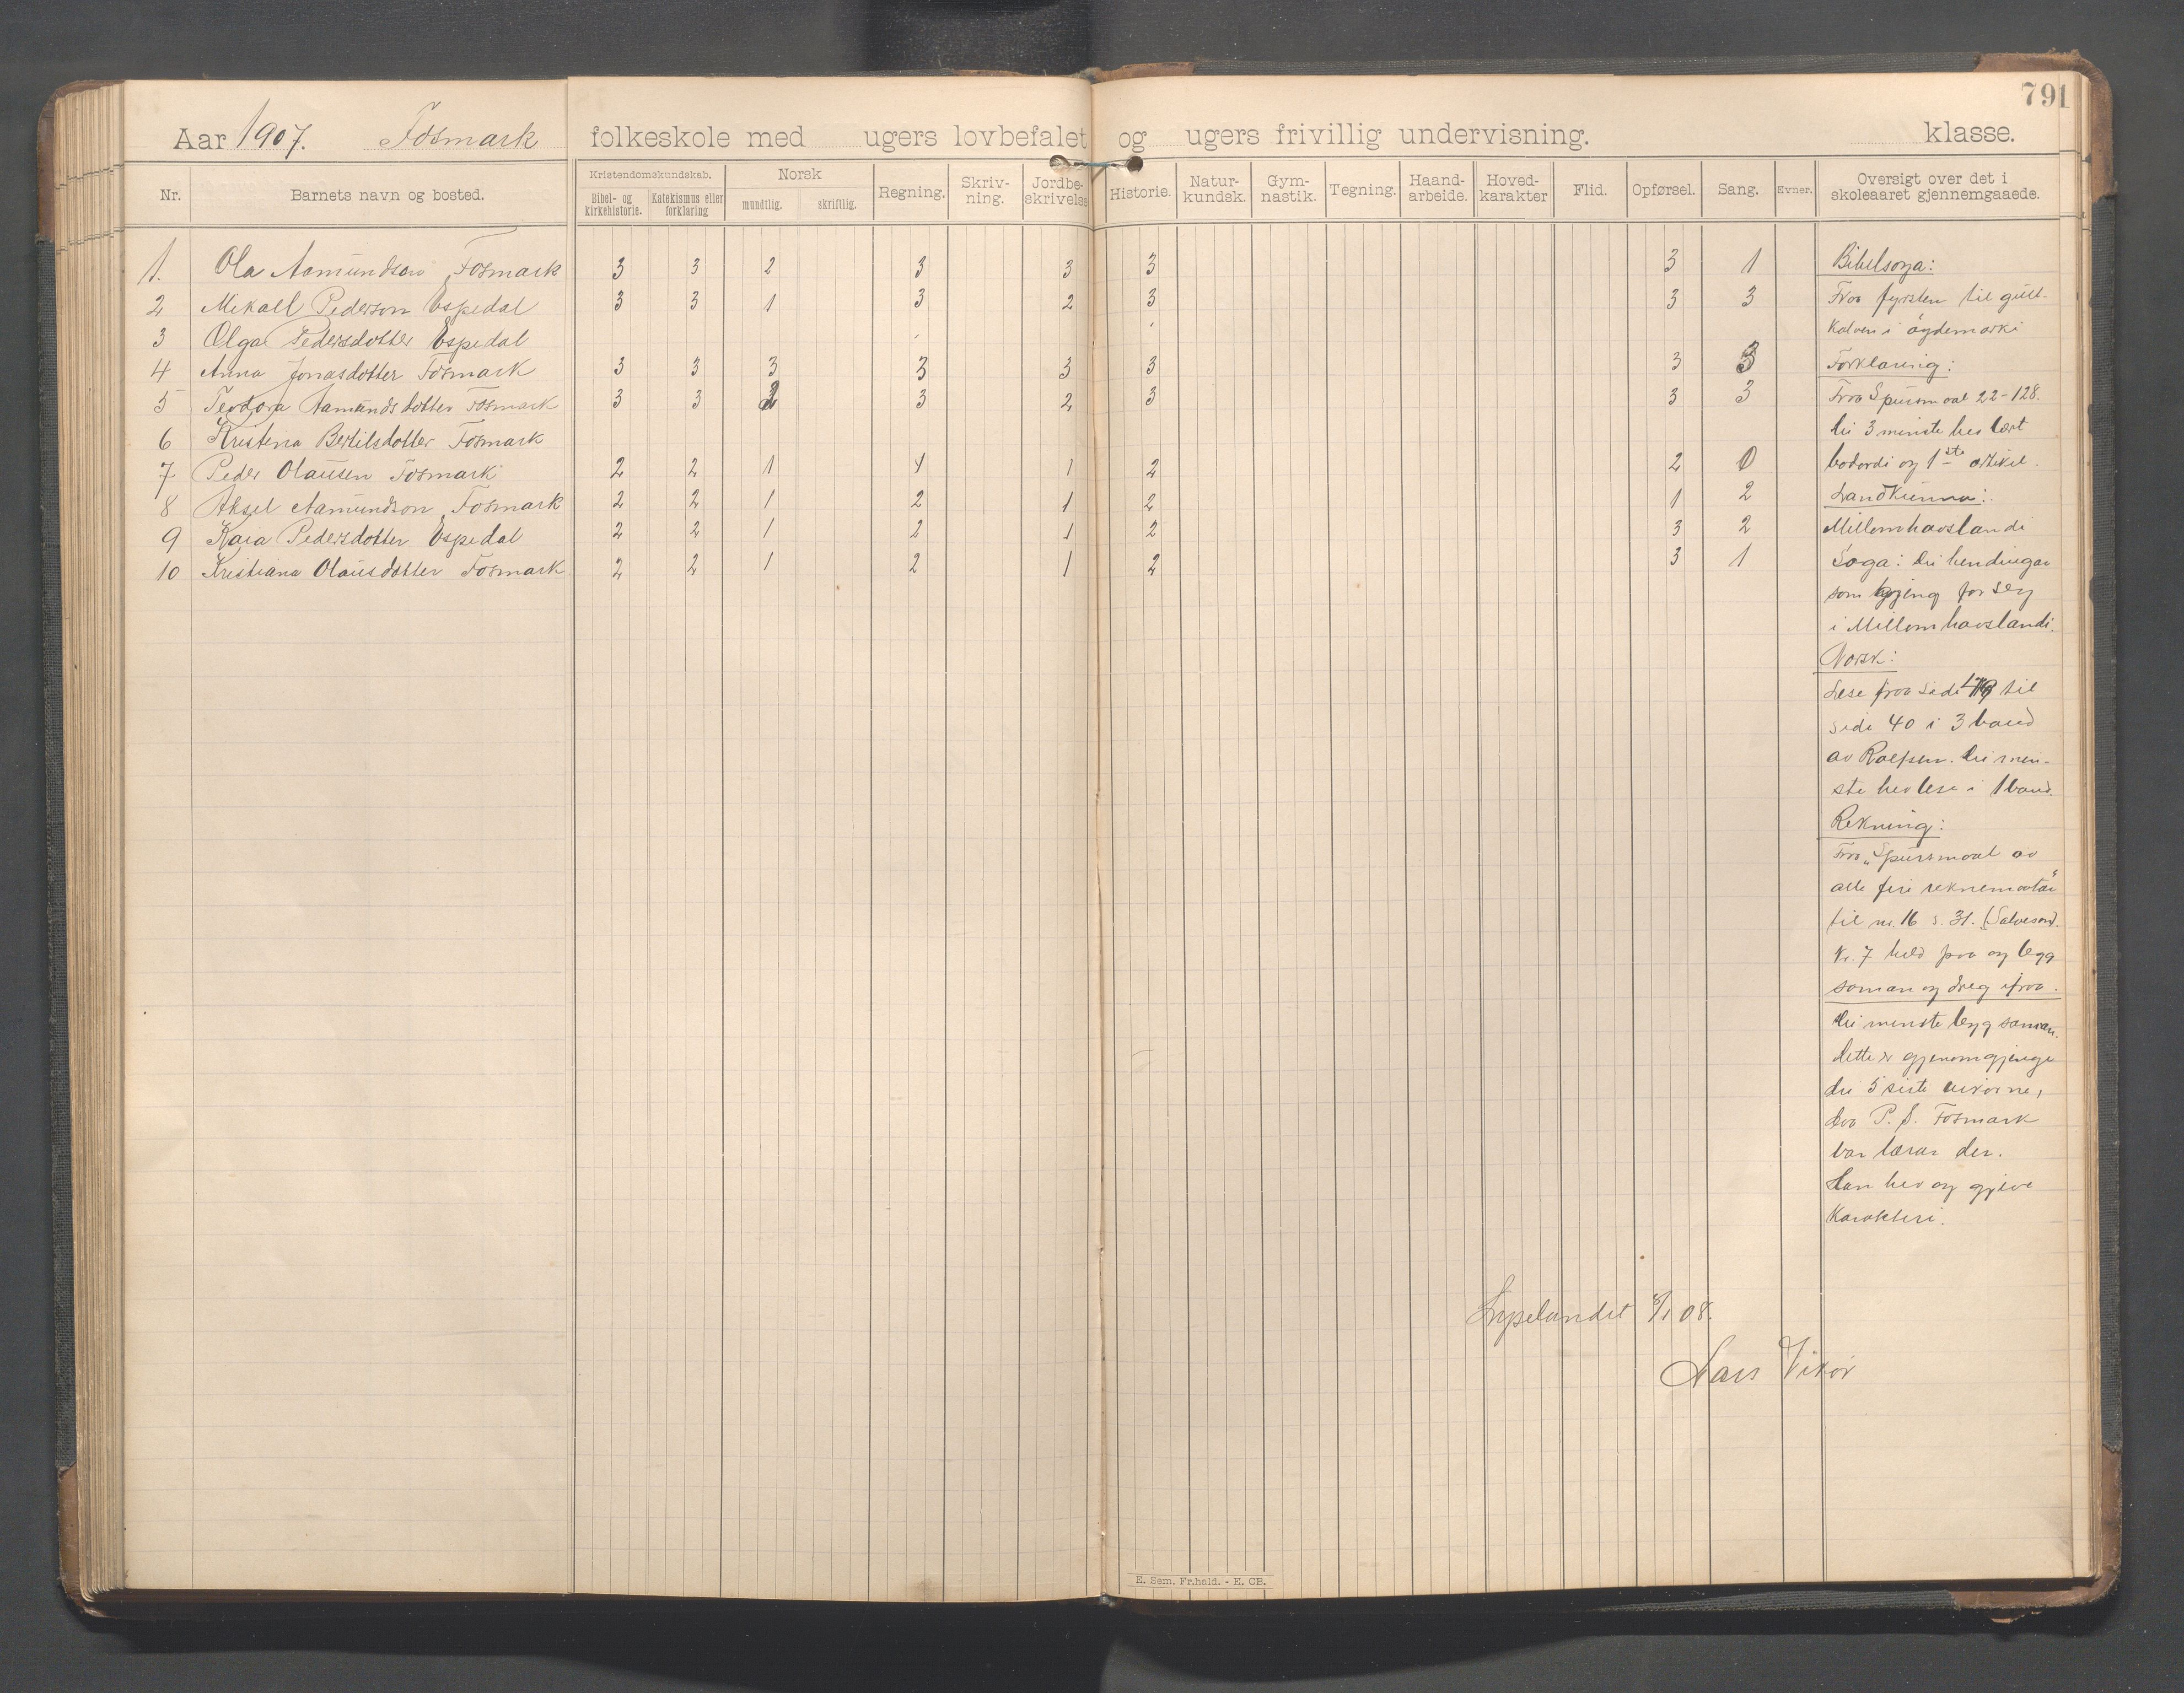 791
Aar 1907. Fosmark folkeskole med ugers lovbefalet og ugers frivillig undervisning. klasse.
Nr. Barnets navn og bosted. Kristendomskundskab. Bibel- og kirkehistorie. Katekismus eller forklaring Norsk mundtlig. skriftlig. Regning. Skriv-ning. Jordbe-skrivelse Historie. Natur-kundsk. Gym-nastik. Tegning. Haand-arbeide. Hoved-karakter Flid. Opførsel. Sang. Evner. Oversigt over det i skoleaaret gjennemgaaede.
1. Ola Aamundson Fosmark 3 3 2 3 3 3 3 1
2 Mikall Pederson Espedal 3 3 1 3 2 3 3 3
3 Olga Pedersdotter Espedal
4 Anna Jonasdotter Fosmark 3 3 3 3 3 3 3 3
5 Teodora Aamundsdotter Fosmark 3 3 2 3 2 3 3 3
6 Kristina Bertilsdotter Fosmark
7 Peder Olausen Fosmark 2 2 1 1 1 2 2 0
8 Aksel Aamundson Fosmark 2 2 1 2 1 2 1 2
9 Kaia Pedersdotter Espedal 2 2 1 2 1 2 3 2
10 Kristiana Olausdotter Fosmark 2 2 1 2 1 2 3 1
Bibelsoga:
Fraa fyrsten til gull-
kalven i öydemarki
Forklaring:
Fraa Spursmaal 22-128.
Dei 3 minste hev lært
bodordi og 1ste artikel.
Landkunna:
Millomhavslandi
Soga: Dei hendingar
som gjeng for seg
i Millomhavslandi.
Norsk:
Lese fraa side til
side 40 i 3 band
av Rolfsen. Dei min-
ste hev lese i 1 band.
Rekning:
Fraa „Spursmaal av
alle fire reknemaatar"
til nr. 16 s. 31. (Salveson).
Nr. 7 held paa og legg
saman og dreg ifraa.
Dei minste legg saman.
Dette er gjenomgjenge
dei 5 siste vikorne,
daa P. S. Fosmark
var lærar der.
Han hev og gjeve
Karakteri.
Lypelandet 8/1 08.
Lars Vikør
E. Sem. Fr.hald. - E. CB.